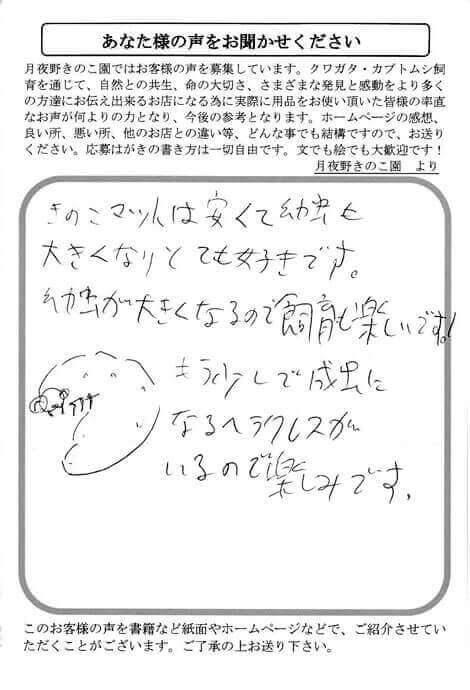 あなた様の声をお聞かせください
月夜野きのこ園ではお客様の声を募集しています。クワガタ・カブトムシ飼
育を通じて、自然との共生、命の大切さ、さまざまな発見と感動をより多く
の方達にお伝え出来るお店になる為に実際に用品をお使い頂いた皆様の率直
なお声が何よりの力となり、今後の参考となります。ホームページの感想、
良い所、悪い所、他のお店との違い等、どんな事でも結構ですので、お送り
ください。応募はがきの書き方は一切自由です。文でも絵でも大歓迎です！
月夜野きのこ園　より
きのこマットは安くて幼虫も
大きくなりとても好きです。
幼虫が大きくなるので飼育も楽しいです!
もう少しで成虫に
なるヘラクレスが
いるので楽しみです。
このお客様の声を書籍など紙面やホームページなどで、ご紹介させてい
ただくことがございます。ご了承の上お送り下さい。